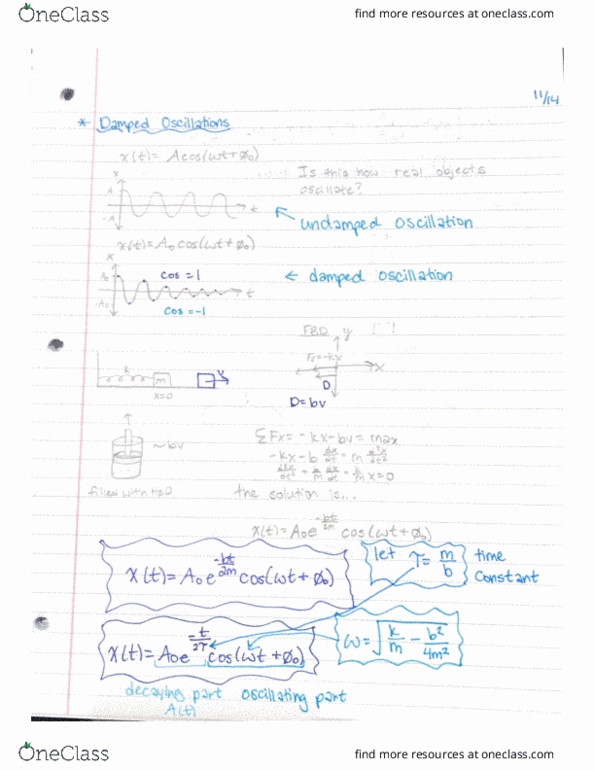 OneClass
find more resources at oneclass.com
11/14
* Damped Oscillations
x(t) = Acos(ωt+φ₀)
Is this how real objects
oscillate?
x
A
-A
t
undamped oscillation
x(t) = A₀ cos(ωt+φ₀)
x
A₀
cos = 1
-A₀
t
cos = -1
← damped oscillation
FBD
y
x
D
D = bv
k
m
v
x=0
~bv
filled with H₂O
ΣFx = -kx - bv = max
-kx - b dx/dt = m d²x/dt²
d²x/dt² + b/m dx/dt + k/m x = 0
the solution is...
x(t) = A₀e^(-bt/2m) cos(ωt+φ₀)
x(t) = A₀e^(-bt/2m) cos(ωt+φ₀)
let τ = m/b
time
constant
x(t) = A₀e^(-t/2τ) cos(ωt+φ₀)
ω = √(k/m - b²/4m²)
decaying part
A(t)
oscillating part
OneClass
find more resources at oneclass.com